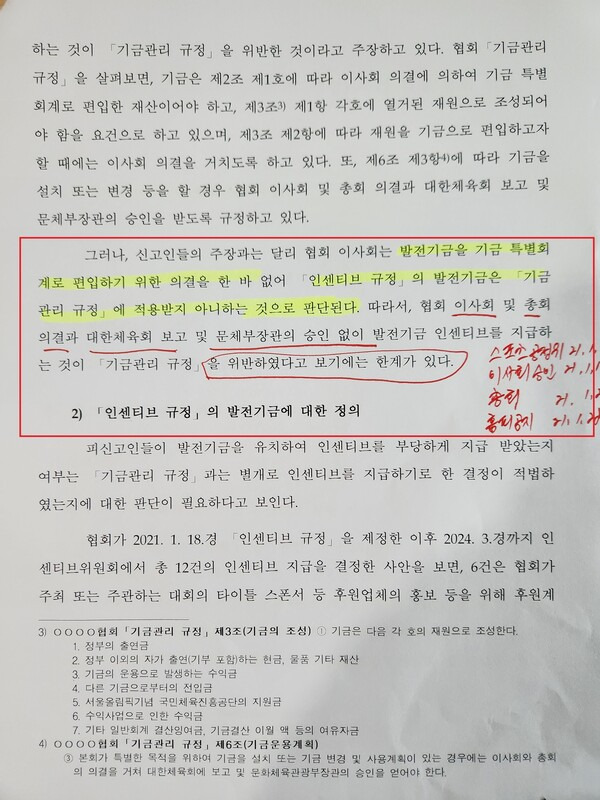 하는 것이 「기금관리 규정」을 위반한 것이라고 주장하고 있다. 협회「기금관리
규정」을 살펴보면, 기금은 제2조 제1호에 따라 이사회 의결에 의하여 기금 특별
회계로 편입한 재산이어야 하고, 제3조3) 제1항 각호에 열거된 재원으로 조성되어
야 함을 요건으로 하고 있으며, 제3조 제2항에 따라 재원을 기금으로 편입하고자
할 때에는 이사회 의결을 거치도록 하고 있다. 또, 제6조 제3항4)에 따라 기금을
설치 또는 변경 등을 할 경우 협회 이사회 및 총회 의결과 대한체육회 보고 및
문체부장관의 승인을 받도록 규정하고 있다.
그러나, 신고인들의 주장과는 달리 협회 이사회는 발전기금을 기금 특별회
계로 편입하기 위한 의결을 한 바 없어 「인센티브 규정」의 발전기금은 「기금
관리 규정」에 적용받지 아니하는 것으로 판단된다. 따라서, 협회 이사회 및 총회
의결과 대한체육회 보고 및 문체부장관의 승인 없이 발전기금 인센티브를 지급하
는 것이 「기금관리 규정」을 위반하였다고 보기에는 한계가 있다.
스포츠공정위 21.1.
이사회 승인 21.1.
총회 21.1.2
홈피공지 21.1.29
2) 「인센티브 규정」의 발전기금에 대한 정의
피신고인들이 발전기금을 유치하여 인센티브를 부당하게 지급 받았는지
여부는 「기금관리 규정」과는 별개로 인센티브를 지급하기로 한 결정이 적법하
였는지에 대한 판단이 필요하다고 보인다.
협회가 2021. 1. 18.경 「인센티브 규정」을 제정한 이후 2024. 3.경까지 인
센티브위원회에서 총 12건의 인센티브 지급을 결정한 사안을 보면, 6건은 협회가
주최 또는 주관하는 대회의 타이틀 스폰서 등 후원업체의 홍보 등을 위해 후원계
3) ○○○○협회「기금관리 규정」제3조(기금의 조성) ① 기금은 다음 각 호의 재원으로 조성한다.
1. 정부의 출연금
2. 정부 이외의 자가 출연(기부 포함)하는 현금, 물품 기타 재산
3. 기금의 운용으로 발생하는 수익금
4. 다른 기금으로부터의 전입금
5. 서울올림픽기념 국민체육진흥공단의 지원금
6. 수익사업으로 인한 수익금
7. 기타 일반회계 결산잉여금, 기금결산 이월 액 등의 여유자금
4) ○○○○협회「기금관리 규정」제6조(기금운용계획)
③ 본회가 특별한 목적을 위하여 기금을 설치 또는 기금 변경 및 사용계획이 있는 경우에는 이사회와 총회
의 의결을 거쳐 대한체육회에 보고 및 문화체육관광부장관의 승인을 얻어야 한다.